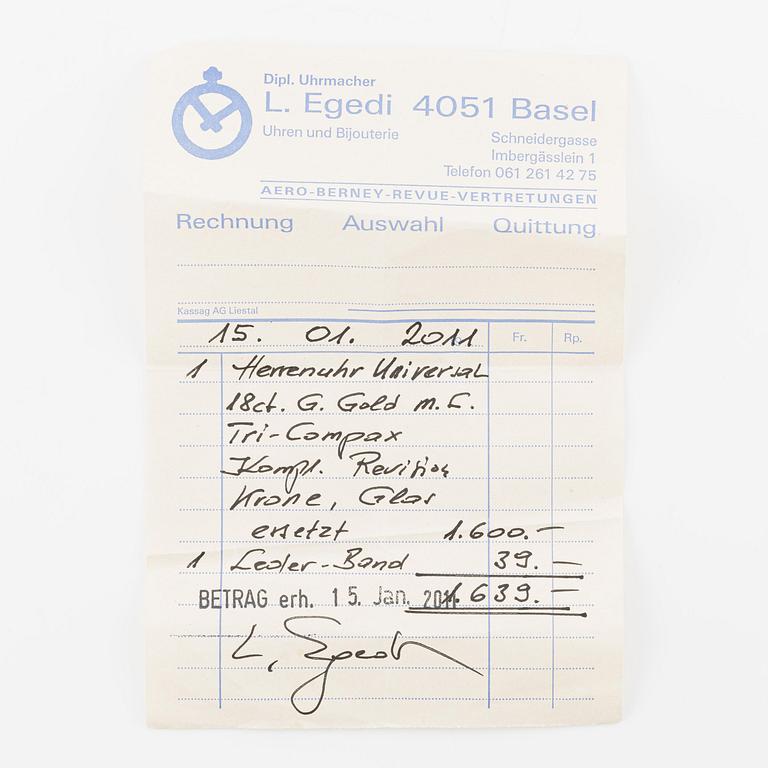 Dipl. Uhrmacher
L. Egedi 4051 Basel
Uhren und Bijouterie
Schneidergasse
Imbergässlein 1
Telefon 061 261 42 75
AERO-BERNEY-REVUE-VERTRETUNGEN
Rechnung Auswahl Quittung
Kassag AG Liestal
15. 01. 2011 Fr. Rp.
1 Herrenuhr Universal
18ct. G. Gold m. L.
Tri-Compax
Kompl. Revision
Krone, Glas
ersetzt 1.600.—
1 Leder-Band 39.—
BETRAG erh. 15. Jan. 2011 1639.—
L. Egedi